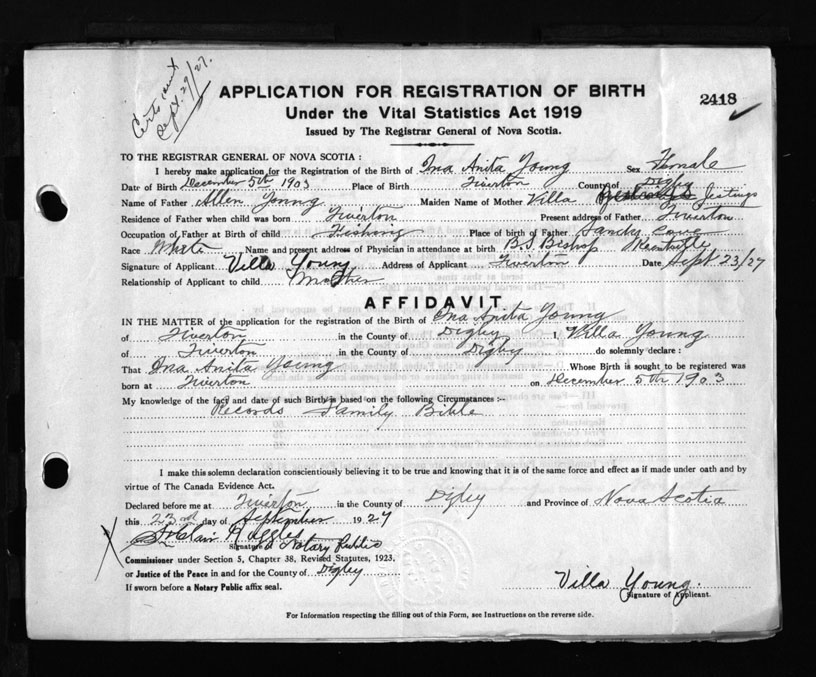 Sept. 29/27.
APPLICATION FOR REGISTRATION OF BIRTH
2418
Under the Vital Statistics Act 1919
Issued by The Registrar General of Nova Scotia.
TO THE REGISTRAR GENERAL OF NOVA SCOTIA :
I hereby make application for the Registration of the Birth of Ina Anita Young Sex Female
Date of Birth December 5th 1903 Place of Birth Tiverton County of Digby
Name of Father Allen Young Maiden Name of Mother Villa
Residence of Father when child was born Tiverton Present address of Father Tiverton
Occupation of Father at Birth of child Fishing Place of birth of Father Sandy Cove
Race White Name and present address of Physician in attendance at birth B.S. Bishop Kentville
Signature of Applicant Villa Young Address of Applicant Tiverton Date Sept 23/27
Relationship of Applicant to child Mother
AFFIDAVIT
IN THE MATTER of the application for the registration of the Birth of Ina Anita Young
of Tiverton in the County of Digby I, Villa Young
of Tiverton in the County of Digby do solemnly declare :
That Ina Anita Young Whose Birth is sought to be registered was
born at Tiverton on December 5th 1903
My knowledge of the fact and date of such Birth is based on the following Circumstances :-
Records Family Bible
I make this solemn declaration conscientiously believing it to be true and knowing that it is of the same force and effect as if made under oath and by
virtue of The Canada Evidence Act.
Declared before me at Tiverton in the County of Digby and Province of Nova Scotia
this 23rd day of September 1927
StClair Ruggles
Signature A Notary Public
Commissioner under Section 5, Chapter 38, Revised Statutes, 1923,
or Justice of the Peace in and for the County of Digby
If sworn before a Notary Public affix seal.
Villa Young.
Signature of Applicant.
For Information respecting the filling out of this Form, see Instructions on the reverse side.